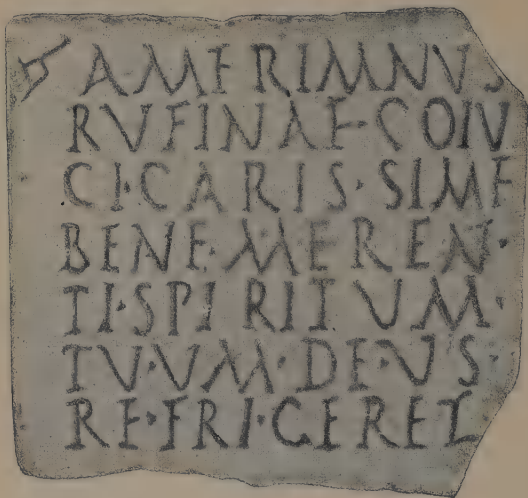 AMERIMNVS
RVFINAE COIV
CI·CARIS·SIME
BENE·MEREN·
TI·SPIRITVM·
TV·VM·DE·VS·
RE·FRI·GERET